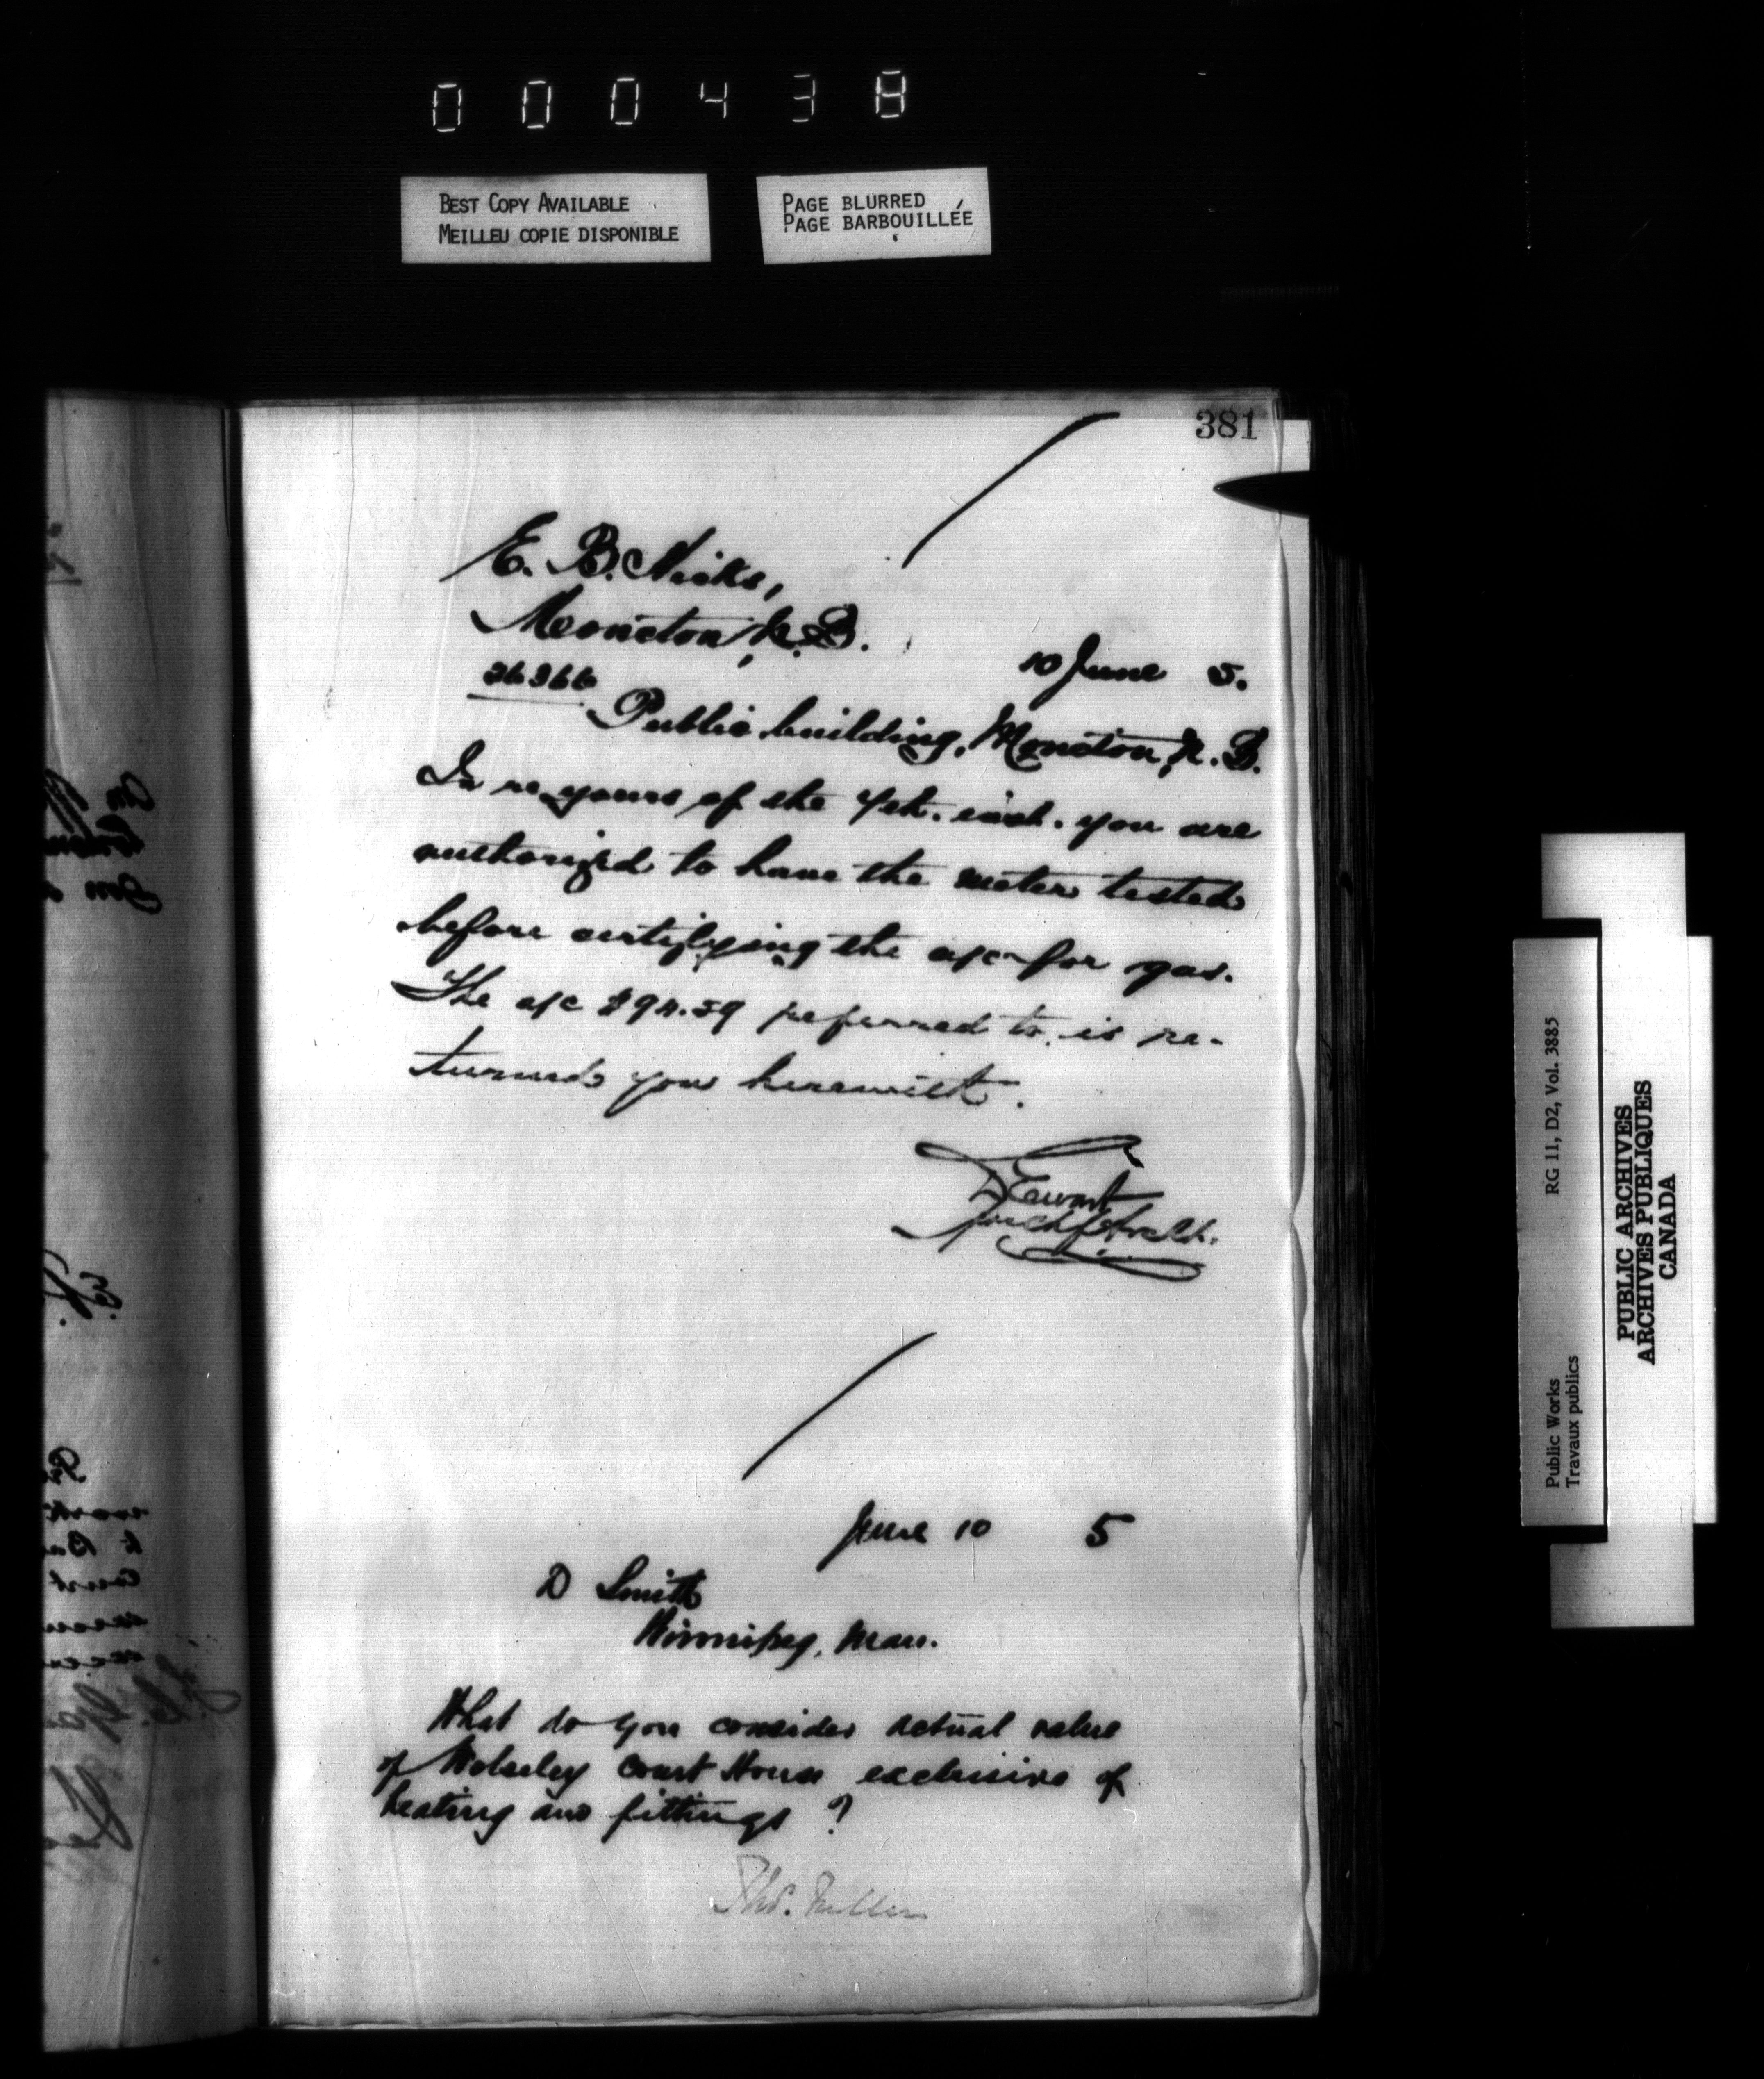 000438
BEST COPY AVAILABLE
MEILLEU COPIE DISPONIBLE
PAGE BLURRED
PAGE BARBOUILLÉE
381
E. B. Hicks,
Moncton, N. B.
10 June 5.
26366
Public building, Moncton, N. B.
In re yours of the 7th. inst. you are
authorized to have the meter tested
before certifying the a/c for gas.
The a/c $94.59 referred to, is re-
turned you herewith.
D Ewart
for Chf Archt.
June 10 5
D Smith
Winnipeg, Man.
What do you consider actual value
of Wolseley Court House exclusive of
heating and fittings ?
Thos. Fuller
Public Works
Travaux publics
RG 11, D2, Vol. 3885
PUBLIC ARCHIVES
ARCHIVES PUBLIQUES
CANADA